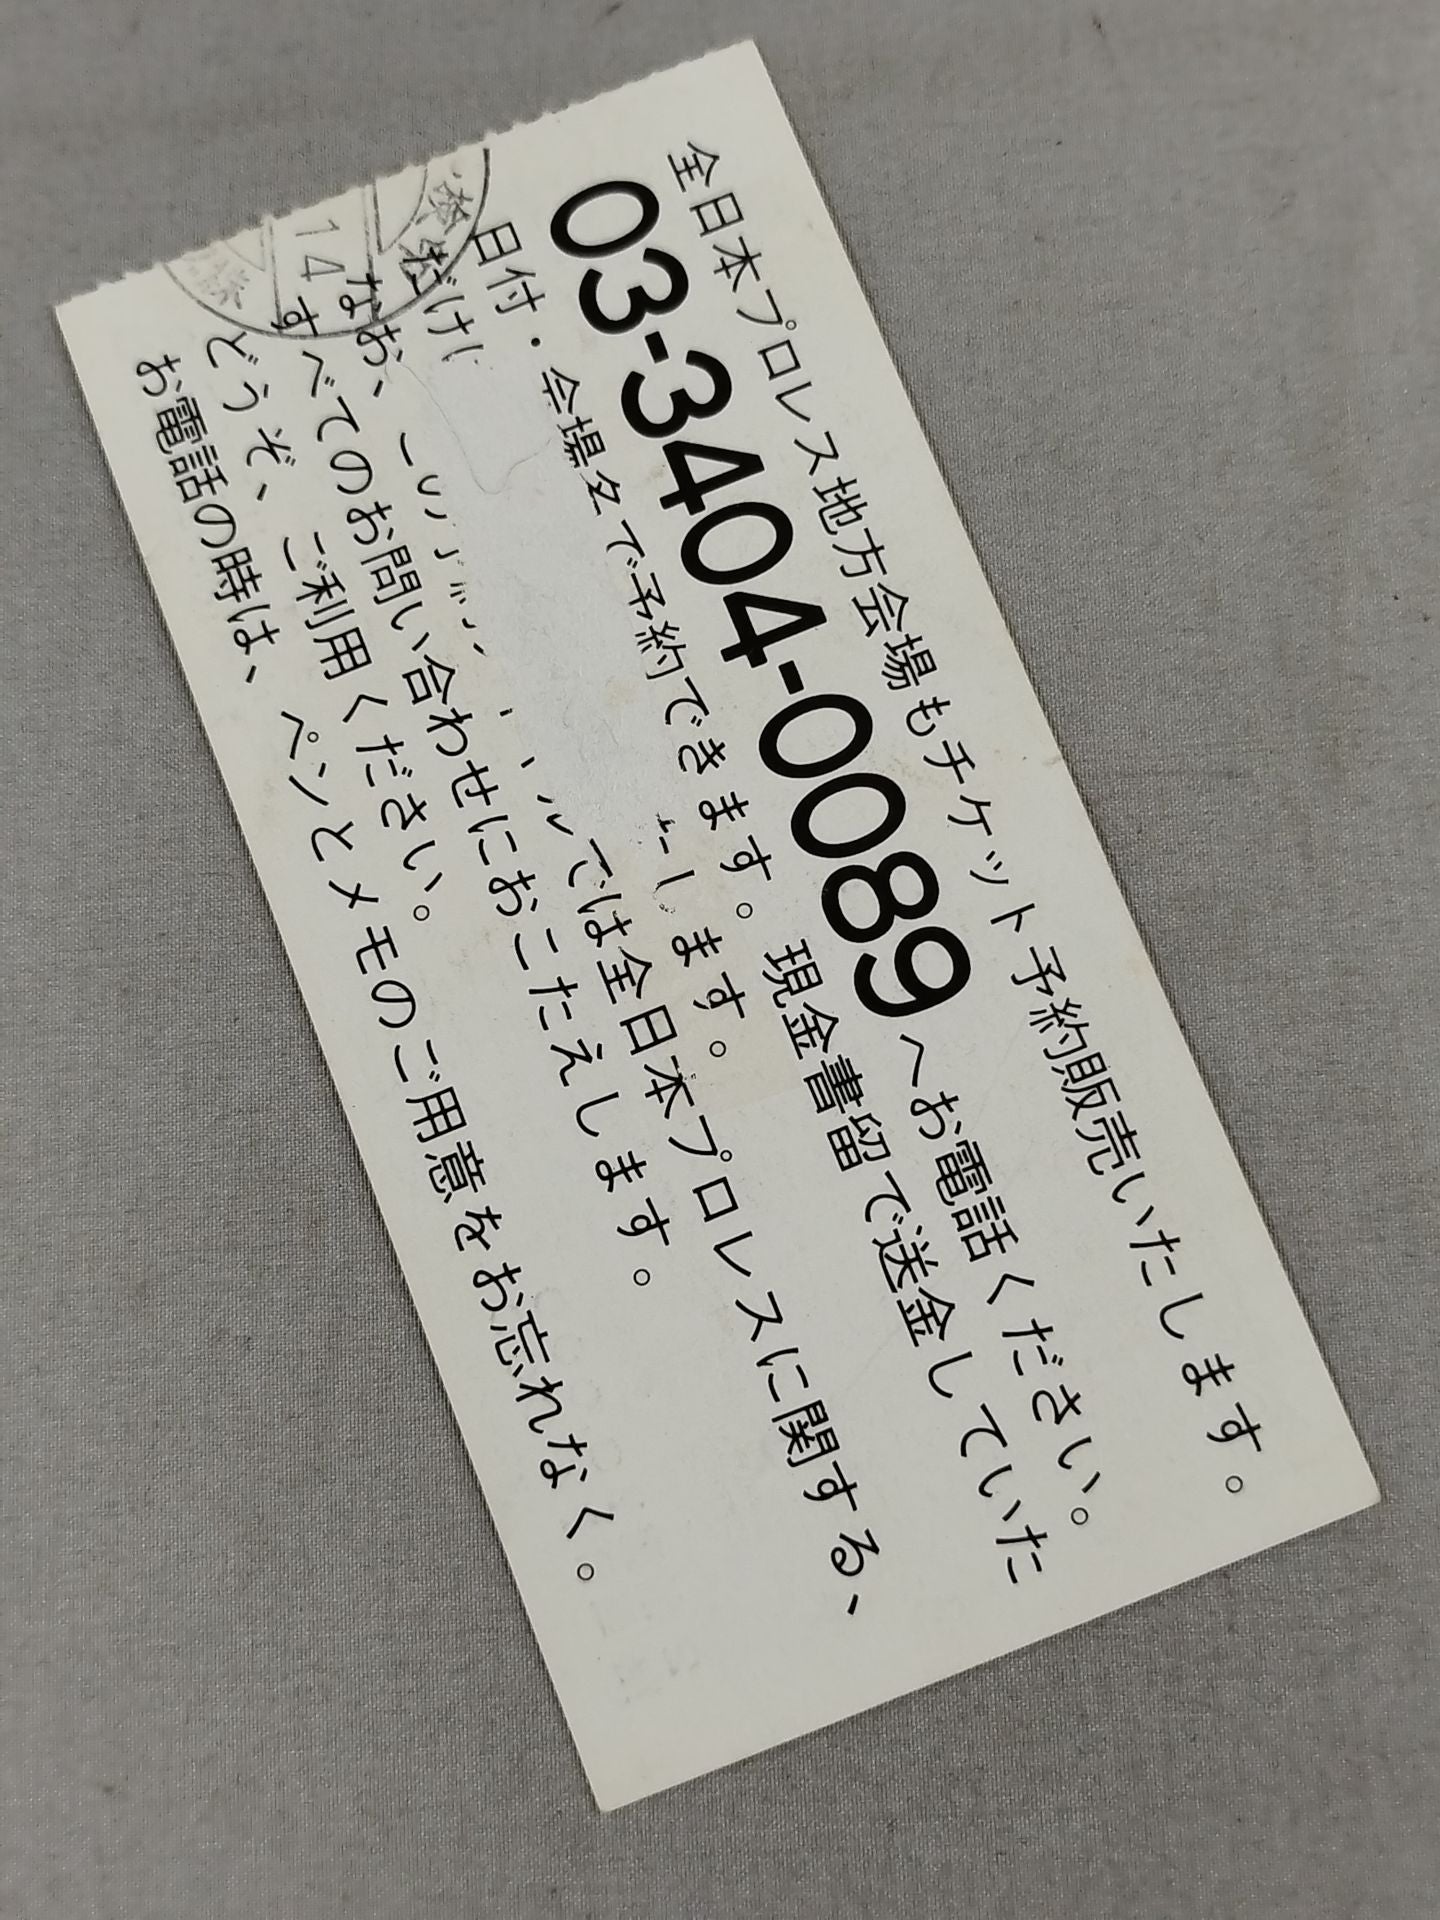 全日本プロレス地方会場もチケット予約販売いたします。
03-3404-0089へお電話ください。
日付・会場名で予約できます。現金書留で送金していた
だけ します。
なお、 では全日本プロレスに関する、
すべてのお問い合わせにおこたえします。
どうぞ、ご利用ください。
お電話の時は、ペンとメモのご用意をお忘れなく。
14